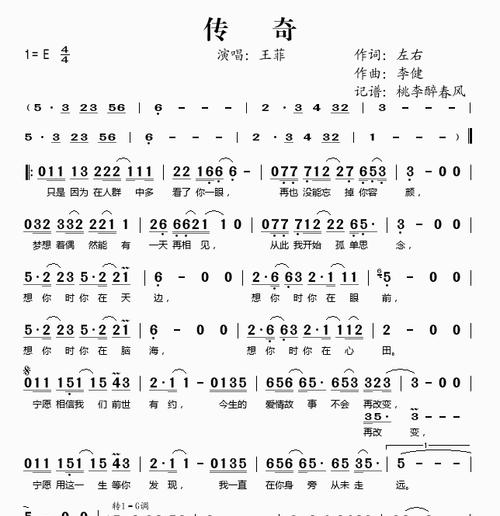 传 奇
1=E 4/4 演唱：王菲 作词：左右
作曲：李健
记谱：桃李醉春风
(5·3 23 56 | 6 - - - | 2·3 23 43 | 3 2 4 32 |
5·3 23 56 | 6 - - - | 2·3 2 4 32 | 1 - - - ) ‖
‖: 011 13 222 111 | 22 1666 - | 077 712 27 653 | 3 - 0 0 |
只是 因为 在人群 中多 看了你一眼， 再也 没能忘 掉你容 颜，
032 332 221 1 | 26 6621 1 0 | 077 712 22 65· | 3 - 0 0 |
梦想 着偶 然能 有 一天再相见， 从此我开始 孤单思 念，
5·2 23 5·2 21 | 6 - 0 0 | 2·6 63 2·1 11 | 5 - 0 0 |
想你 时你 在 天 边， 想你 时你 在眼 前，
5·2 23 5·2 21 | 6 - 0 0 | 2·6 63 2·1 112 | 1 - 0 0 |
想你 时你 在 脑 海， 想你 时你 在心 田。
011 151 15 43 | 2·1 1 - 0135 | 656 65· 653 323 | 3 - - 0 |
宁愿 相信我 们 前世 有约， 今生的 爱情故 事 不会 再改变，
35· 3 - -
再改 变，
011 151 15 43 | 2·1 1 - 0135 | 656 65· 35· 351 | 5 - - - |
宁愿 用这一 生 等你 发现， 我一直 在你身 旁 从未走 远。
转1=G调